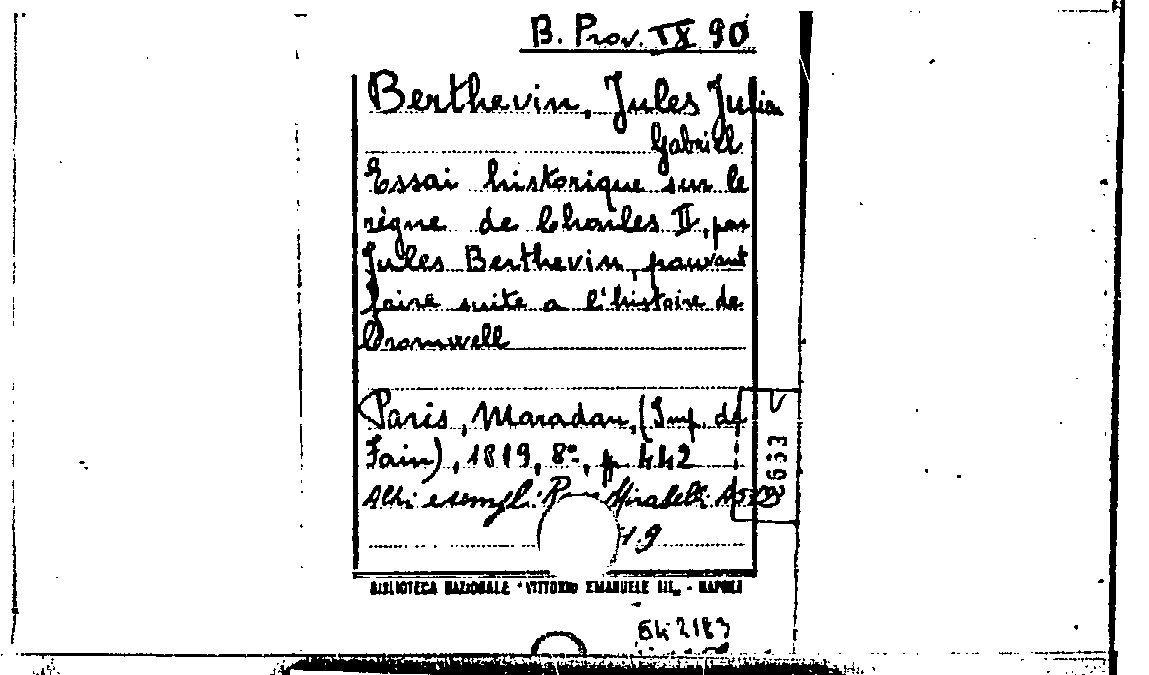 B. Prov. IX 90
Berthevin, Jules Julien
Gabriell
Essai historique sur le
règne de Charles II, par
Jules Berthevin, pouvant
faire suite a l'histoire de
Cromwell
Paris, Maradan, (Imp. de
Fain), 1819, 8°, p. 442
Altri esempl: Mirabelli
1.9
BIBLIOTECA NAZIONALE "VITTORIO EMANUELE III„ - NAPOLI
2183
2633